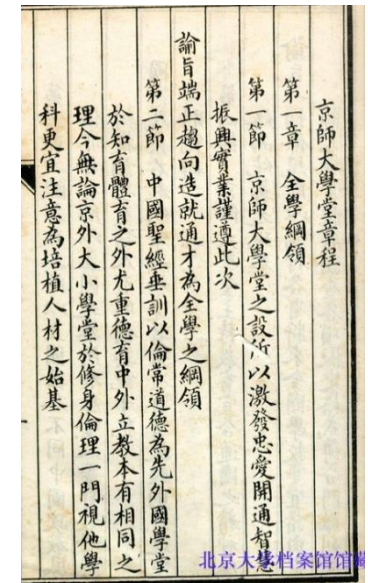 京師大學堂章程
第一章 全學綱領
第一節 京師大學堂之設所以激發忠愛開通智慧
振興實業謹遵此次
諭旨端正趨向造就通才為全學之綱領
第二節 中國聖經垂訓以倫常道德為先外國學堂
於知育體育之外尤重德育中外立教本有相同之
理今無論京外大小學堂於修身倫理一門視他學
科更宜注意為培植人材之始基
北京大学档案馆馆藏